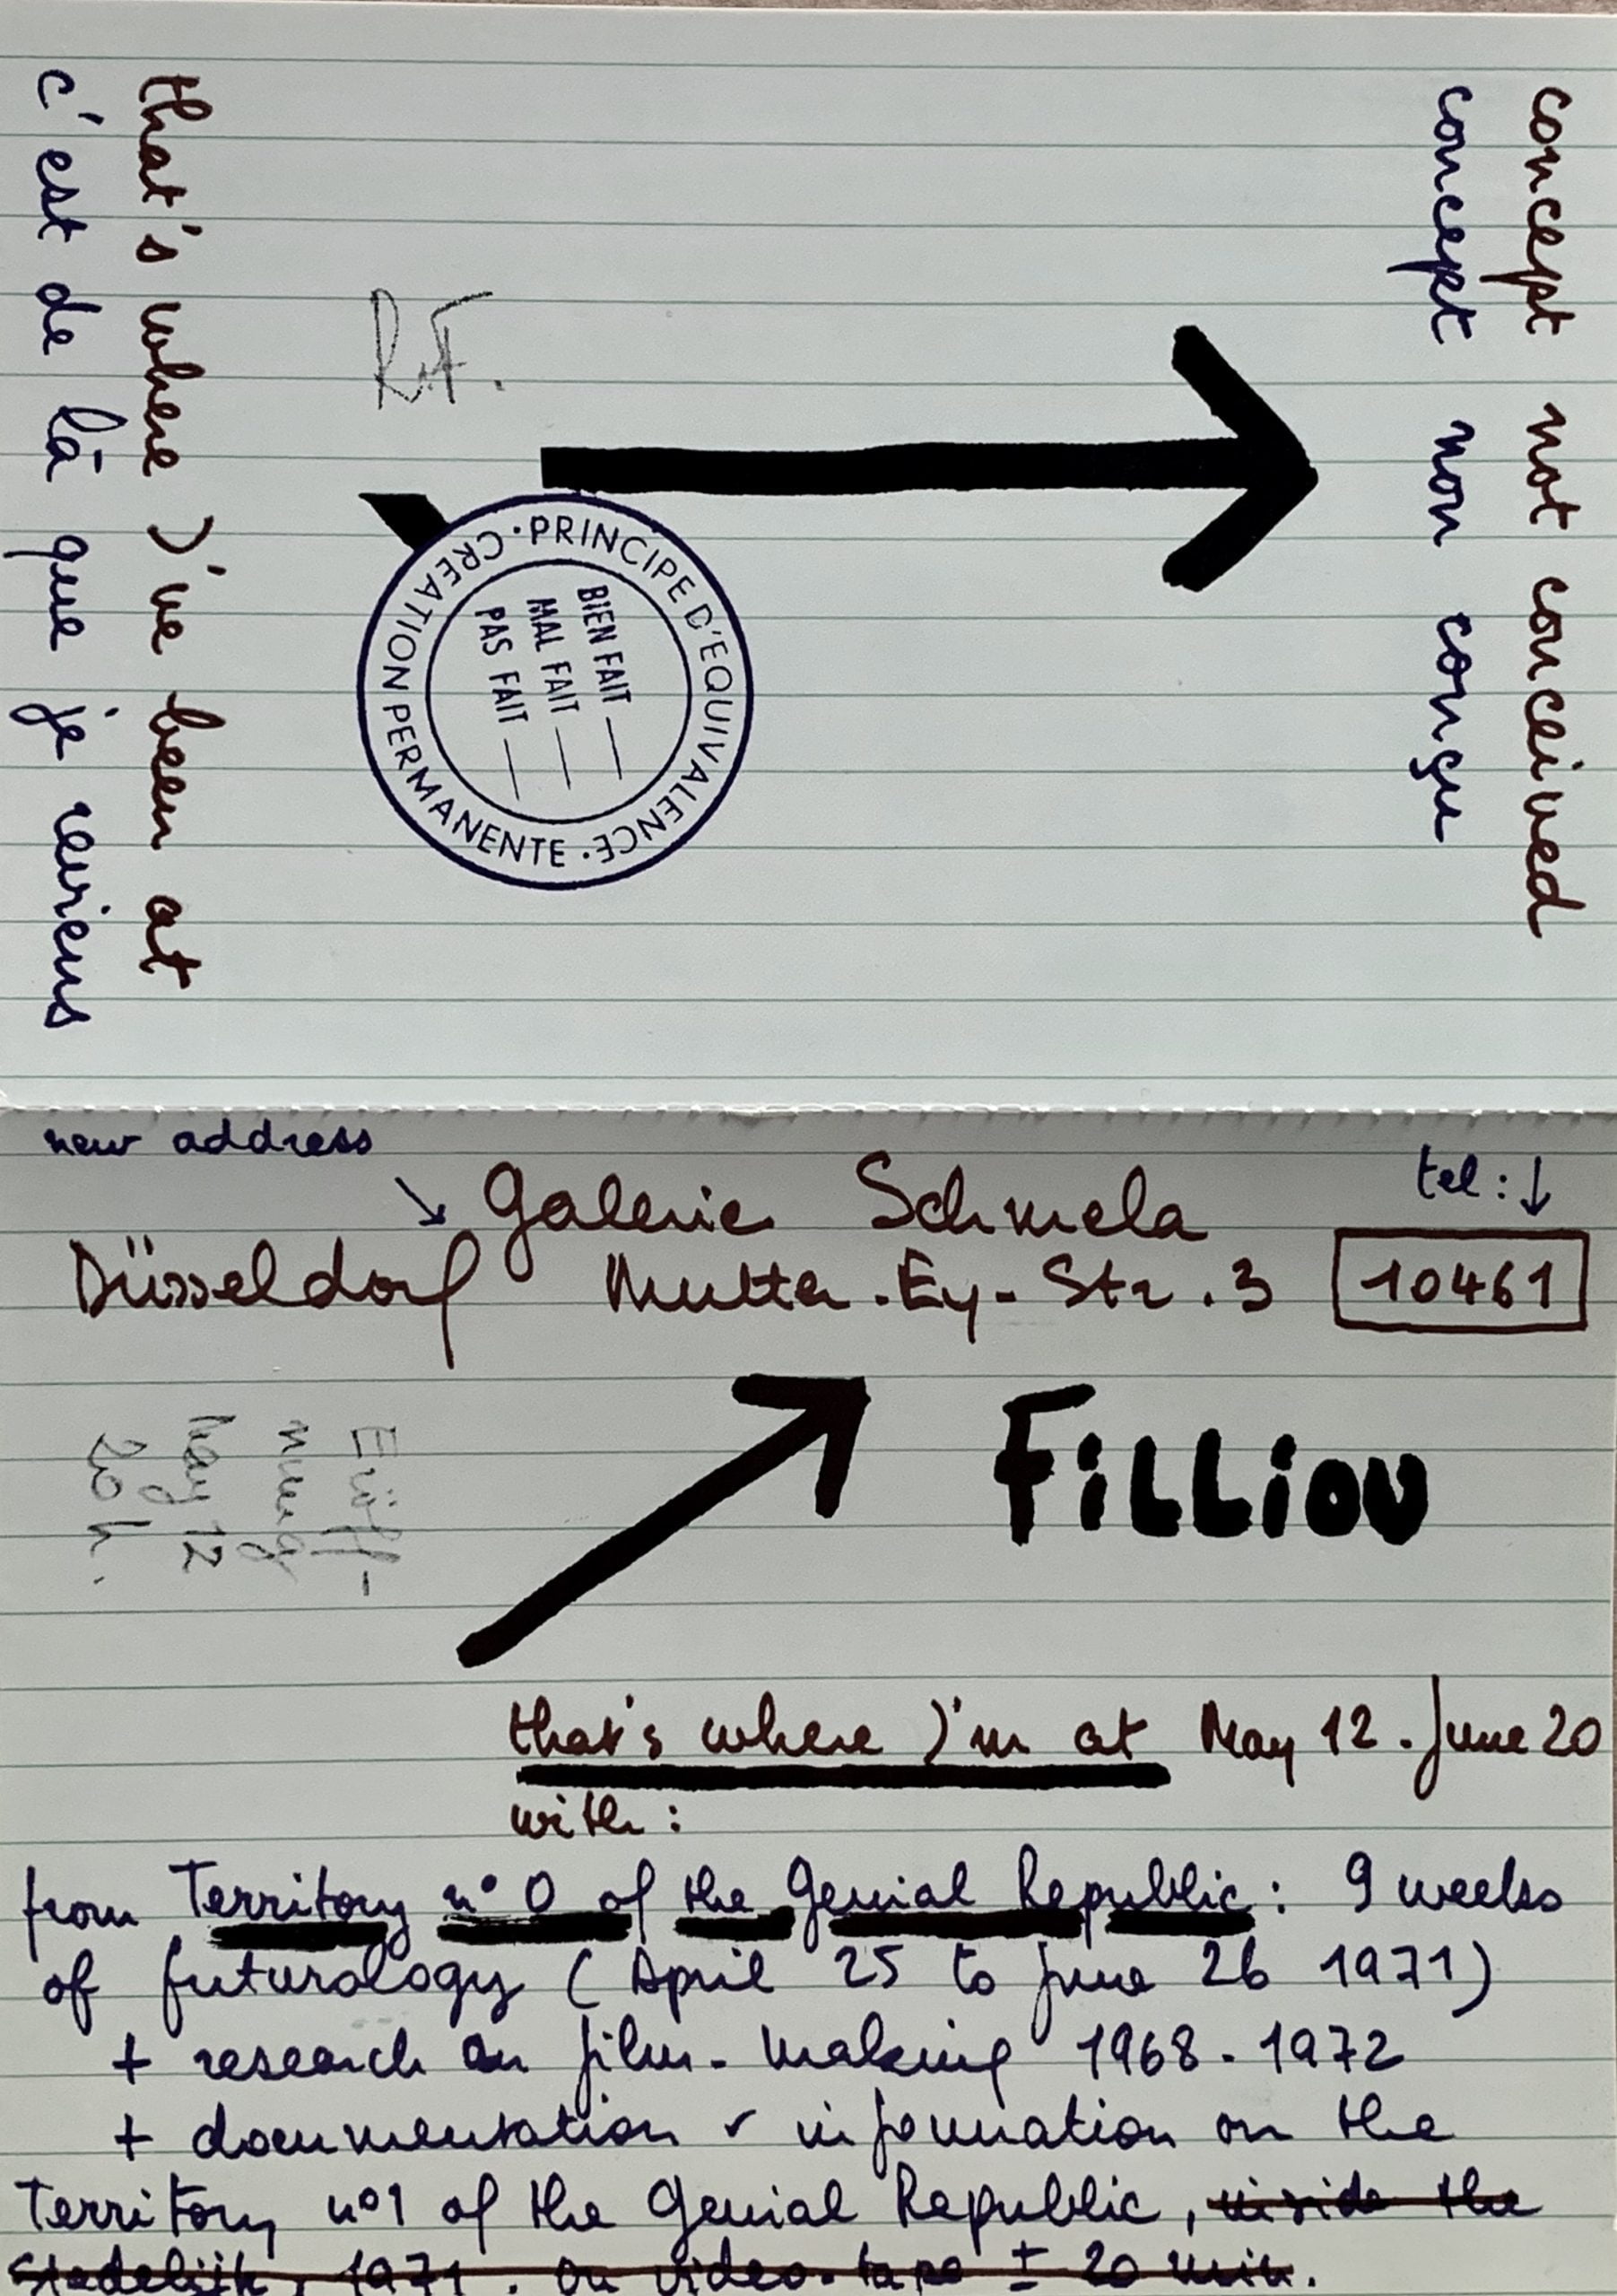 concept not conceived
concept non conçu
R.F.
PRINCIPE D'EQUIVALENCE · CREATION PERMANENTE ·
BIEN FAIT —
MAL FAIT —
PAS FAIT —
that's where I've been at
c'est de là que je reviens
new address
tel:
Galerie Schmela
Düsseldorf Mutter-Ey-Str. 3 10461
Eröff-
nung
May 12
20 h.
FiLLiou
that's where I'm at May 12 - June 20
with:
from Territory n° 0 of the Genial Republic: 9 weeks
of futurology (April 25 to June 26 1971)
+ research on film-making 1968-1972
+ documentation & information on the
Territory n°1 of the Genial Republic, inside the
Stedelijk, 1971. on video-tape ± 20 min.